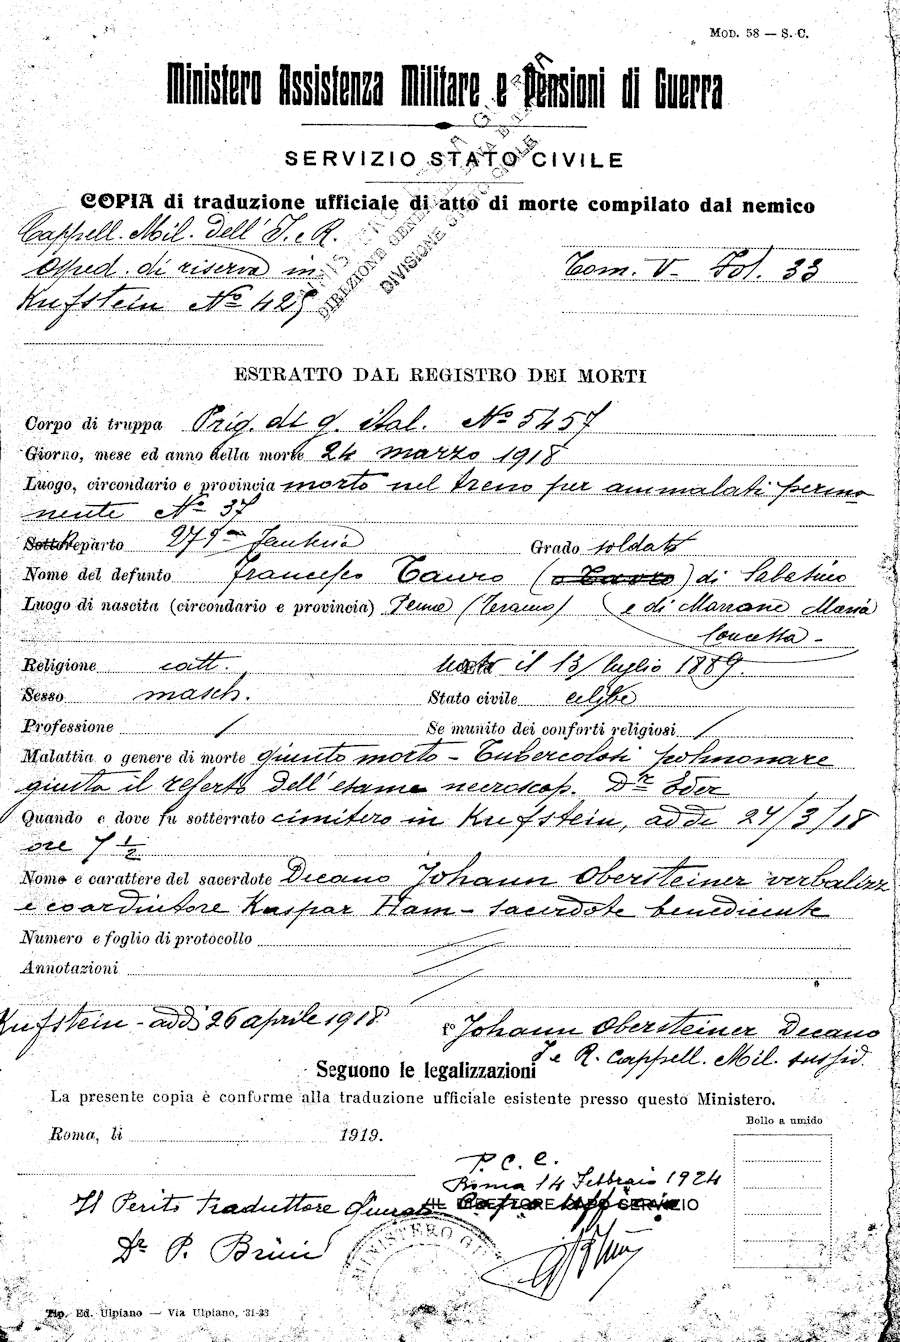 MOD. 58 — S. C.
Ministero Assistenza Militare e Pensioni di Guerra
SERVIZIO STATO CIVILE
COPIA di traduzione ufficiale di atto di morte compilato dal nemico
Cappell. Mil. dell' I. e R.
Osped. di riserva in
Kufstein Nº 425
Tom. V - Fol. 33
DIREZIONE GENERALE LEVA E
DIVISIONE STATO CIVILE
ESTRATTO DAL REGISTRO DEI MORTI
Corpo di truppa Prig. di g. ital. Nº 5457
Giorno, mese ed anno della morte 24 marzo 1918
Luogo, circondario e provincia morto nel treno per ammalati perma
nente Nº 37
Sotto Reparto 279º Fanteria Grado soldato
Nome del defunto Francesco Tauro ( o Tavro ) di Sabatino
Luogo di nascita (circondario e provincia) Penne (Teramo) e di Marrone Maria
Concetta -
Religione catt. nato il 13/luglio 1889.
Sesso masch. Stato civile celibe
Professione / Se munito dei conforti religiosi /
Malattia o genere di morte giunto morto - Tubercolosi polmonare
giusta il referto dell'esame necroscop. Dr Eder
Quando e dove fu sotterrato cimitero in Kufstein, addì 27/3/18
ore 7 ½
Nome e carattere del sacerdote Decano Johann Obersteiner verbalizz
e coardiutore Kaspar Ham - sacerdote benedicente
Numero e foglio di protocollo
Annotazioni
Kufstein - addì 26 aprile 1918 fº Johann Obersteiner Decano
I e R. Cappell. Mil. sussid.
Seguono le legalizzazioni
La presente copia è conforme alla traduzione ufficiale esistente presso questo Ministero.
Bollo a umido
Roma, li 1919.
P. C. C.
Roma 14 Febbraio 1924
IL DIRETTORE CAPO SERVIZIO
Il Perito traduttore Giurato
Dr P. Brini
MINISTERO GU
Tip. Ed. Ulpiano — Via Ulpiano, 31-33